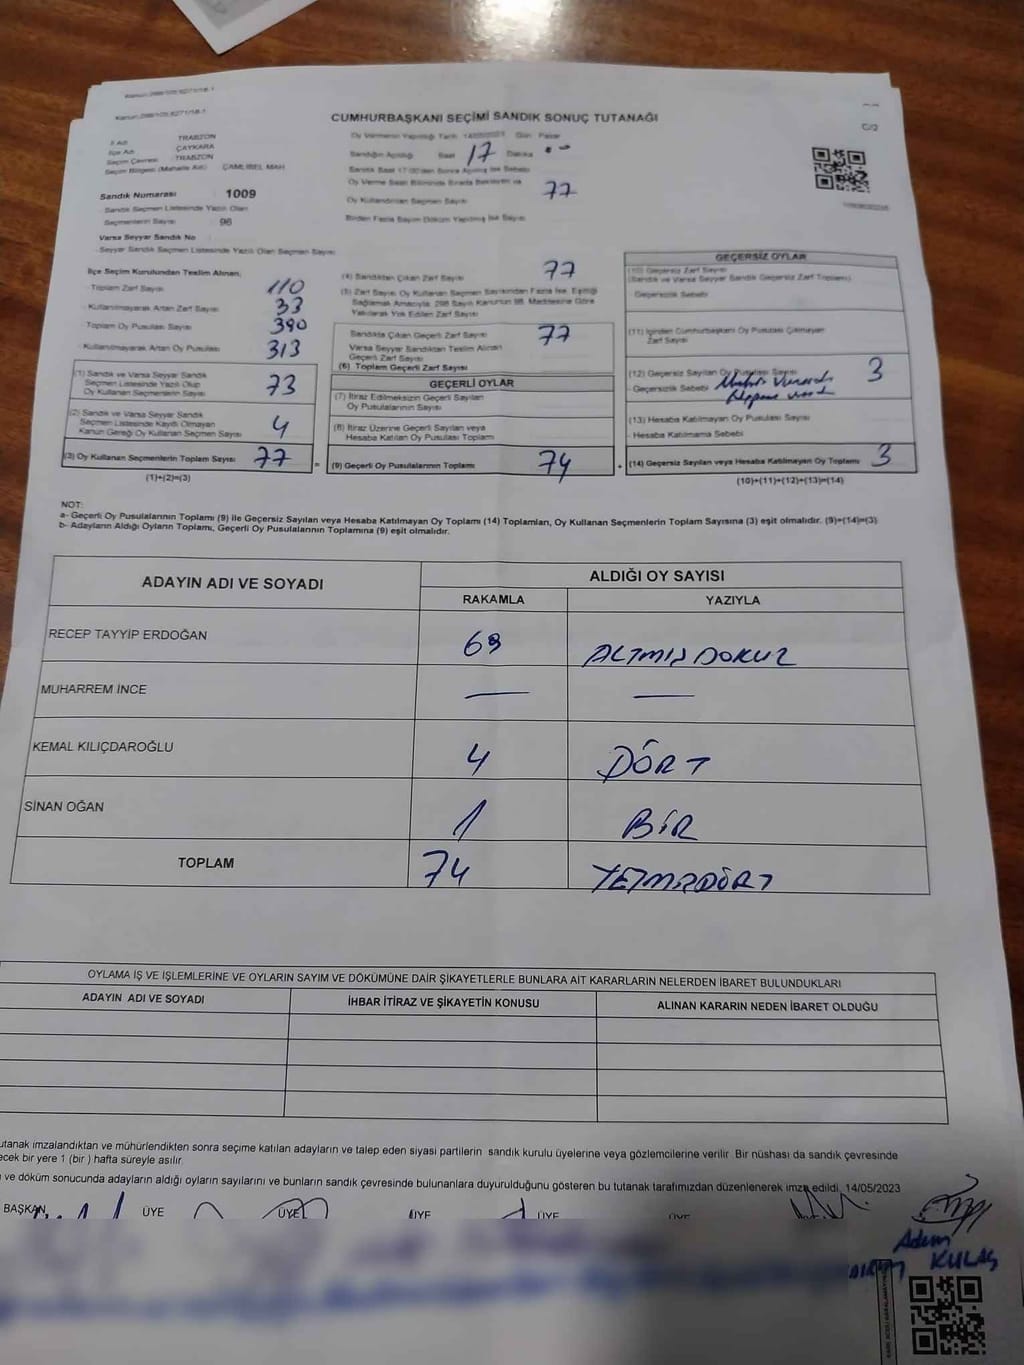 CUMHURBAŞKANI SEÇİMİ SANDIK SONUÇ TUTANAĞI
C/2
İl Adı TRABZON
İlçe Adı ÇAYKARA
Seçim Çevresi TRABZON
Seçim Bölgesi (Mahalle Adı) ÇAMLIBEL MAH
Sandık Numarası 1009
- Sandık Seçmen Listesinde Yazılı Olan
Seçmenlerin Sayısı 96
Varsa Seyyar Sandık No
- Seyyar Sandık Seçmen Listesinde Yazılı Olan Seçmen Sayısı
Oy Vermenin Yapıldığı Tarih 14/05/2023 Gün Pazar
Sandığın Açıldığı Saat 17 Dakika
Oy Kullandırılan Seçmen Sayısı 77
Birden Fazla Sayım Döküm Yapılmış İse Sayısı
İlçe Seçim Kurulundan Teslim Alınan,
- Toplam Zarf Sayısı 110
- Kullanılmayarak Artan Zarf Sayısı 33
- Toplam Oy Pusulası Sayısı 390
- Kullanılmayarak Artan Oy Pusulası 313
(1) Sandık ve Varsa Seyyar Sandık
Seçmen Listesinde Yazılı Olup
Oy Kullanan Seçmenlerin Sayısı 73
(2) Sandık ve Varsa Seyyar Sandık
Seçmen Listesinde Kayıtlı Olmayan
Kanun Gereği Oy Kullanan Seçmen Sayısı 4
(3) Oy Kullanan Seçmenlerin Toplam Sayısı 77
(1)+(2)=(3)
(4) Sandıktan Çıkan Zarf Sayısı 77
(5) Zarf Sayısı Oy Kullanan Seçmen Sayısından Fazla İse, Eşitliği
Sağlamak Amacıyla 298 Sayılı Kanunun 98. Maddesine Göre
Yakılarak Yok Edilen Zarf Sayısı
Sandıkta Çıkan Geçerli Zarf Sayısı 77
Varsa Seyyar Sandıktan Teslim Alınan
Geçerli Zarf Sayısı
(6) Toplam Geçerli Zarf Sayısı
GEÇERLİ OYLAR
(7) İtiraz Edilmeksizin Geçerli Sayılan
Oy Pusulalarının Sayısı
(8) İtiraz Üzerine Geçerli Sayılan veya
Hesaba Katılan Oy Pusulası Toplamı
= (9) Geçerli Oy Pusulalarının Toplamı 74 +
GEÇERSİZ OYLAR
(10) Geçersiz Zarf Sayısı
(Sandık ve Varsa Seyyar Sandık Geçersiz Zarf Toplamı)
- Geçersizlik Sebebi
(11) İçinden Cumhurbaşkanı Oy Pusulası Çıkmayan
Zarf Sayısı
(12) Geçersiz Sayılan Oy Pusulası Sayısı 3
- Geçersizlik Sebebi
(13) Hesaba Katılmayan Oy Pusulası Sayısı
- Hesaba Katılmama Sebebi
(14) Geçersiz Sayılan veya Hesaba Katılmayan Oy Toplamı 3
(10)+(11)+(12)+(13)=(14)
NOT:
a- Geçerli Oy Pusulalarının Toplamı (9) ile Geçersiz Sayılan veya Hesaba Katılmayan Oy Toplamı (14) Toplamları, Oy Kullanan Seçmenlerin Toplam Sayısına (3) eşit olmalıdır. (9)+(14)=(3)
b- Adayların Aldığı Oyların Toplamı, Geçerli Oy Pusulalarının Toplamına (9) eşit olmalıdır.
ADAYIN ADI VE SOYADI ALDIĞI OY SAYISI
RAKAMLA YAZIYLA
RECEP TAYYİP ERDOĞAN 69 ALTMIŞ DOKUZ
MUHARREM İNCE — —
KEMAL KILIÇDAROĞLU 4 DÖRT
SİNAN OĞAN 1 BİR
TOPLAM 74 YETMİŞDÖRT
OYLAMA İŞ VE İŞLEMLERİNE VE OYLARIN SAYIM VE DÖKÜMÜNE DAİR ŞİKAYETLERLE BUNLARA AİT KARARLARIN NELERDEN İBARET BULUNDUKLARI
ADAYIN ADI VE SOYADI İHBAR İTİRAZ VE ŞİKAYETİN KONUSU ALINAN KARARIN NEDEN İBARET OLDUĞU
utanak imzalandıktan ve mühürlendikten sonra seçime katılan adayların ve talep eden siyasi partilerin sandık kurulu üyelerine veya gözlemcilerine verilir. Bir nüshası da sandık çevresinde
ecek bir yere 1 (bir) hafta süreyle asılır.
ve döküm sonucunda adayların aldığı oyların sayılarını ve bunların sandık çevresinde bulunanlara duyurulduğunu gösteren bu tutanak tarafımızdan düzenlenerek imza edildi. 14/05/2023
BAŞKAN ÜYE ÜYE ÜYE ÜYE ÜYE
Adem
KULAŞ